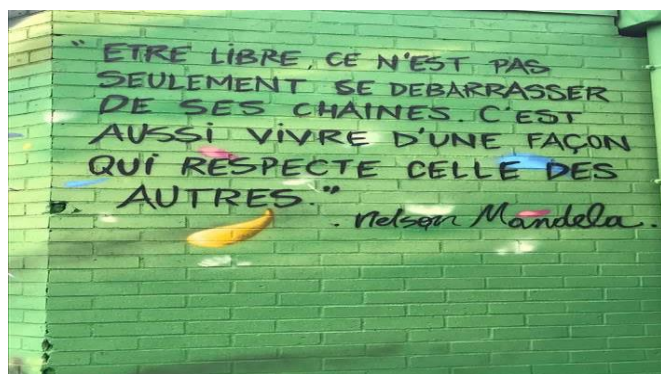 " ETRE LiBRE, CE N'EST PAS
SEULEMENT SE DEBARRASSER
DE SES CHAINES. C'EST
AUSSi ViVRE D'UNE FAÇON
QUi RESPECTE CELLE DES
AUTRES."
. Nelson Mandela.